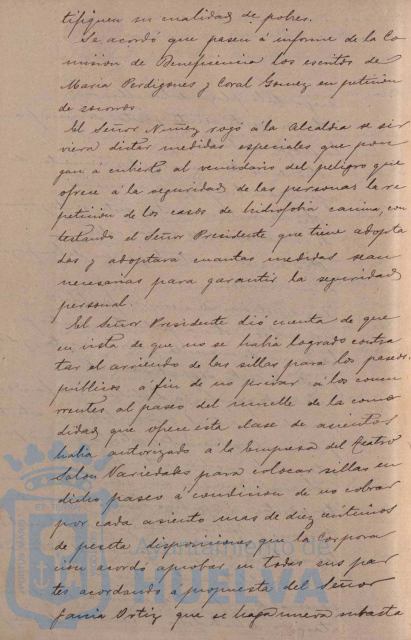 tifiquen su cualidad de pobres.
Se acordó que pasen á informe de la Co
misión de Beneficencia los escritos de
Maria Perdigones y Coral Gomez en petición
de socorros.
El Señor Nuñez rogó á la Alcaldia se sir
viera dictar medidas especiales que pon
gan á cubierto al vecindario del peligro que
ofrece á la seguridad de las personas la re
petición de los casos de hidrofobia canina, con
testando el Señor Presidente que tiene adopta
das y adoptará cuantas medidas sean
necesarias para garantir la seguridad
personal.
El Señor Presidente dió cuenta de que
en vista de que no se habia logrado contra
tar el arriendo de las sillas para los paseos
públicos á fin de no privar á los concu
rrentes al paseo del muelle de la como
didad que ofrece esta clase de asientos
habia autorizado á la Empresa del Teatro
Salon Variedades para colocar sillas en
dicho paseo á condicion de no cobrar
por cada asiento mas de diez centimos
de peseta disposiciones que la Corpora
ción acordó aprobar en todas sus par
tes acordando á propuesta del Señor
Garcia Ortiz que se haga nueva subasta
Ayuntamiento de
HUELVA